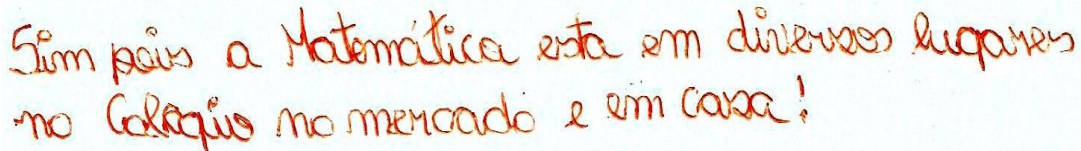 Sim pois a Matemática esta em diversos lugares
no Colégio no mercado e em casa!